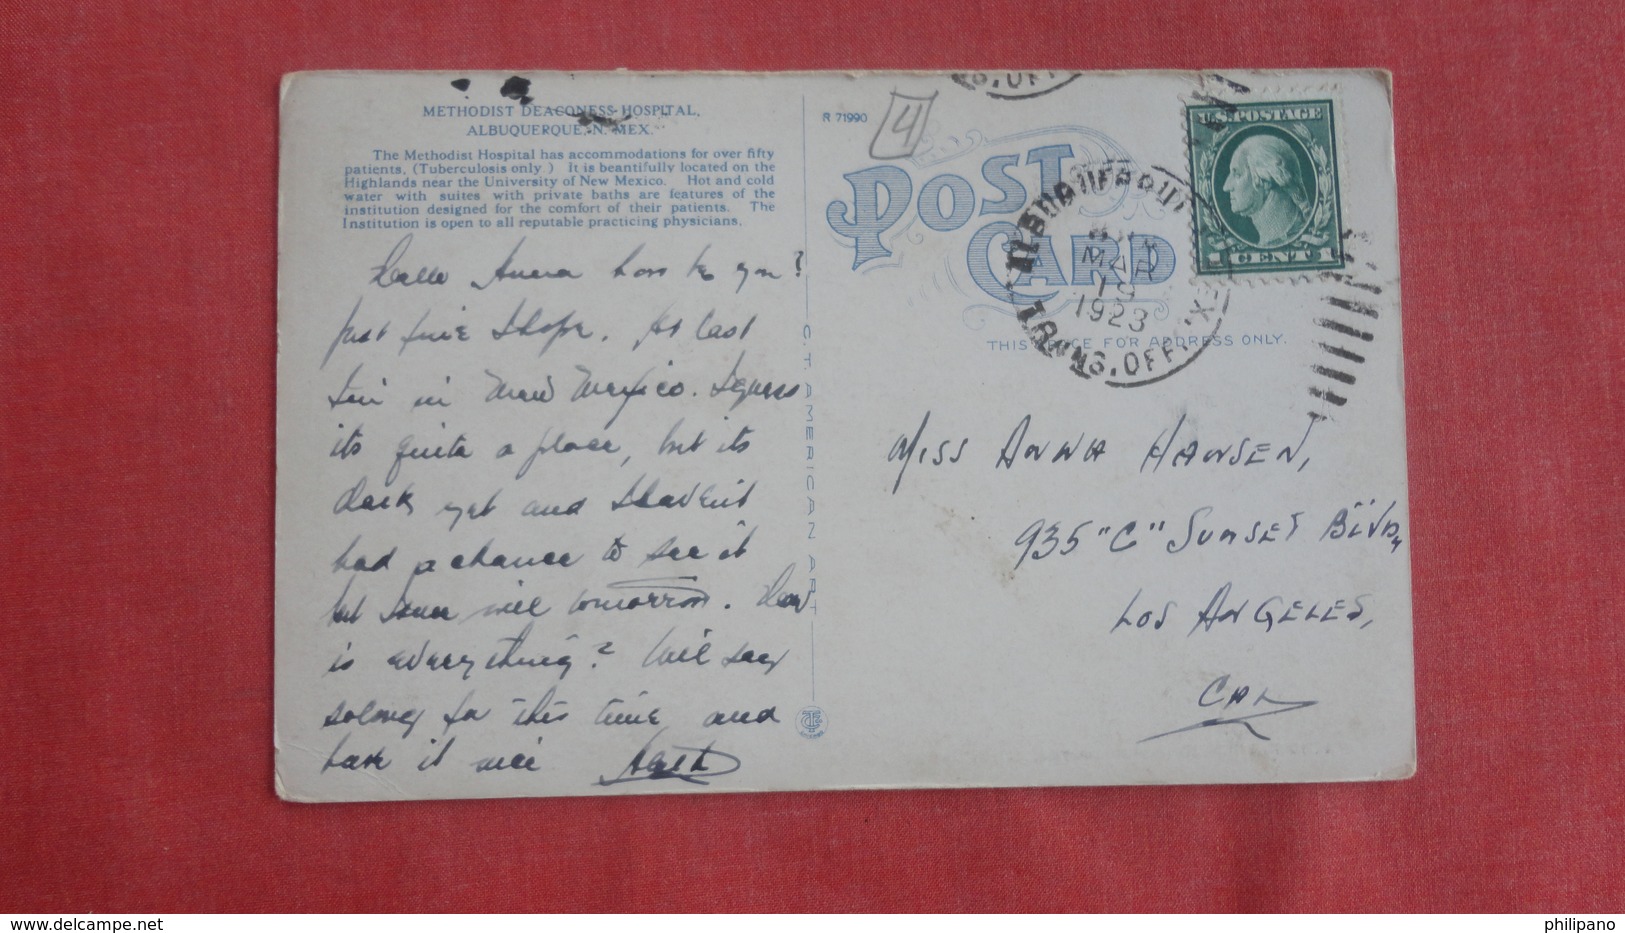 METHODIST DEACONESS HOSPITAL,
ALBUQUERQUE, N. MEX.
The Methodist Hospital has accommodations for over fifty
patients, (Tuberculosis only.) It is beautifully located on the
Highlands near the University of New Mexico. Hot and cold
water with suites with private baths are features of the
institution designed for the comfort of their patients. The
Institution is open to all reputable practicing physicians.
Hello Anna how be you?
just fine I hope. At last
I'm in New Mexico. I guess
its quite a place, but its
dark yet and I haven't
had a chance to see it
but sure will tomorrow. How
is everything? Will say
solong for this time and
take it nice
C. T. AMERICAN ART
R 71990
4
POST
CARD
THIS SPACE FOR ADDRESS ONLY.
S. OFF.
ALBUQUERQUE
MAR
19
1923
TRANS. OFF.
U.S. POSTAGE
1 CENT 1
MISS ANNA HANSEN,
935 "C" SUNSET BLVD,
LOS ANGELES,
CAL
philipano
delcampe.net